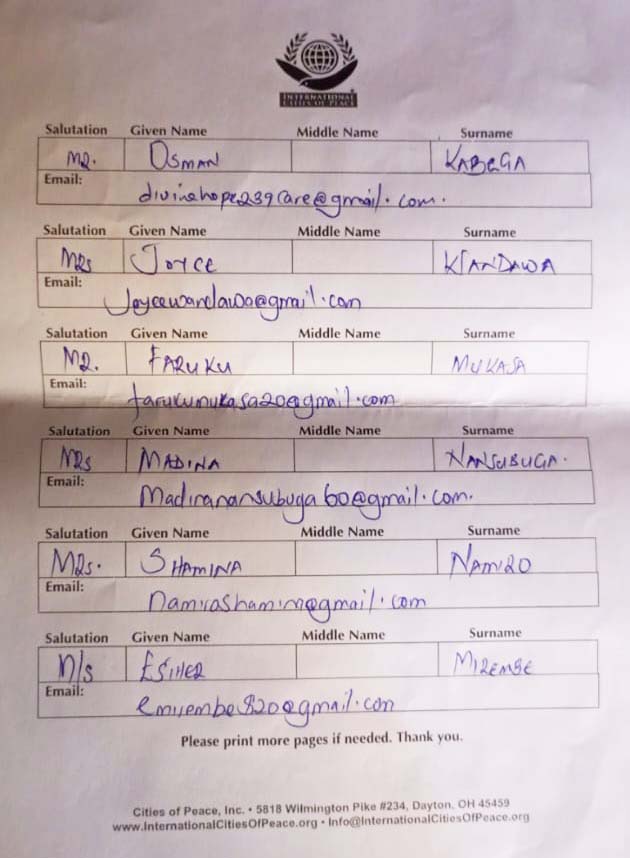 INTERNATIONAL
CITIES OF PEACE
Salutation Given Name Middle Name Surname
MR. OSMAN KABEGA
Email:
divinehope239care@gmail.com.
Salutation Given Name Middle Name Surname
MRS JOYCE
Email:
Salutation Given Name Middle Name Surname
MR. FARUKU MUKASA
Email:
farukumukasa20@gmail.com
Salutation Given Name Middle Name Surname
MRS MADINA NANSUBUGA.
Email:
Madinanansubuga60@gmail.com.
Salutation Given Name Middle Name Surname
MRS. SHAMINA NAMIRO
Email:
Salutation Given Name Middle Name Surname
M/s ESTHER MIREMBE
Email:
Please print more pages if needed. Thank you.
Cities of Peace, Inc. • 5818 Wilmington Pike #234, Dayton, OH 45459
www.InternationalCitiesOfPeace.org • Info@InternationalCitiesOfPeace.org